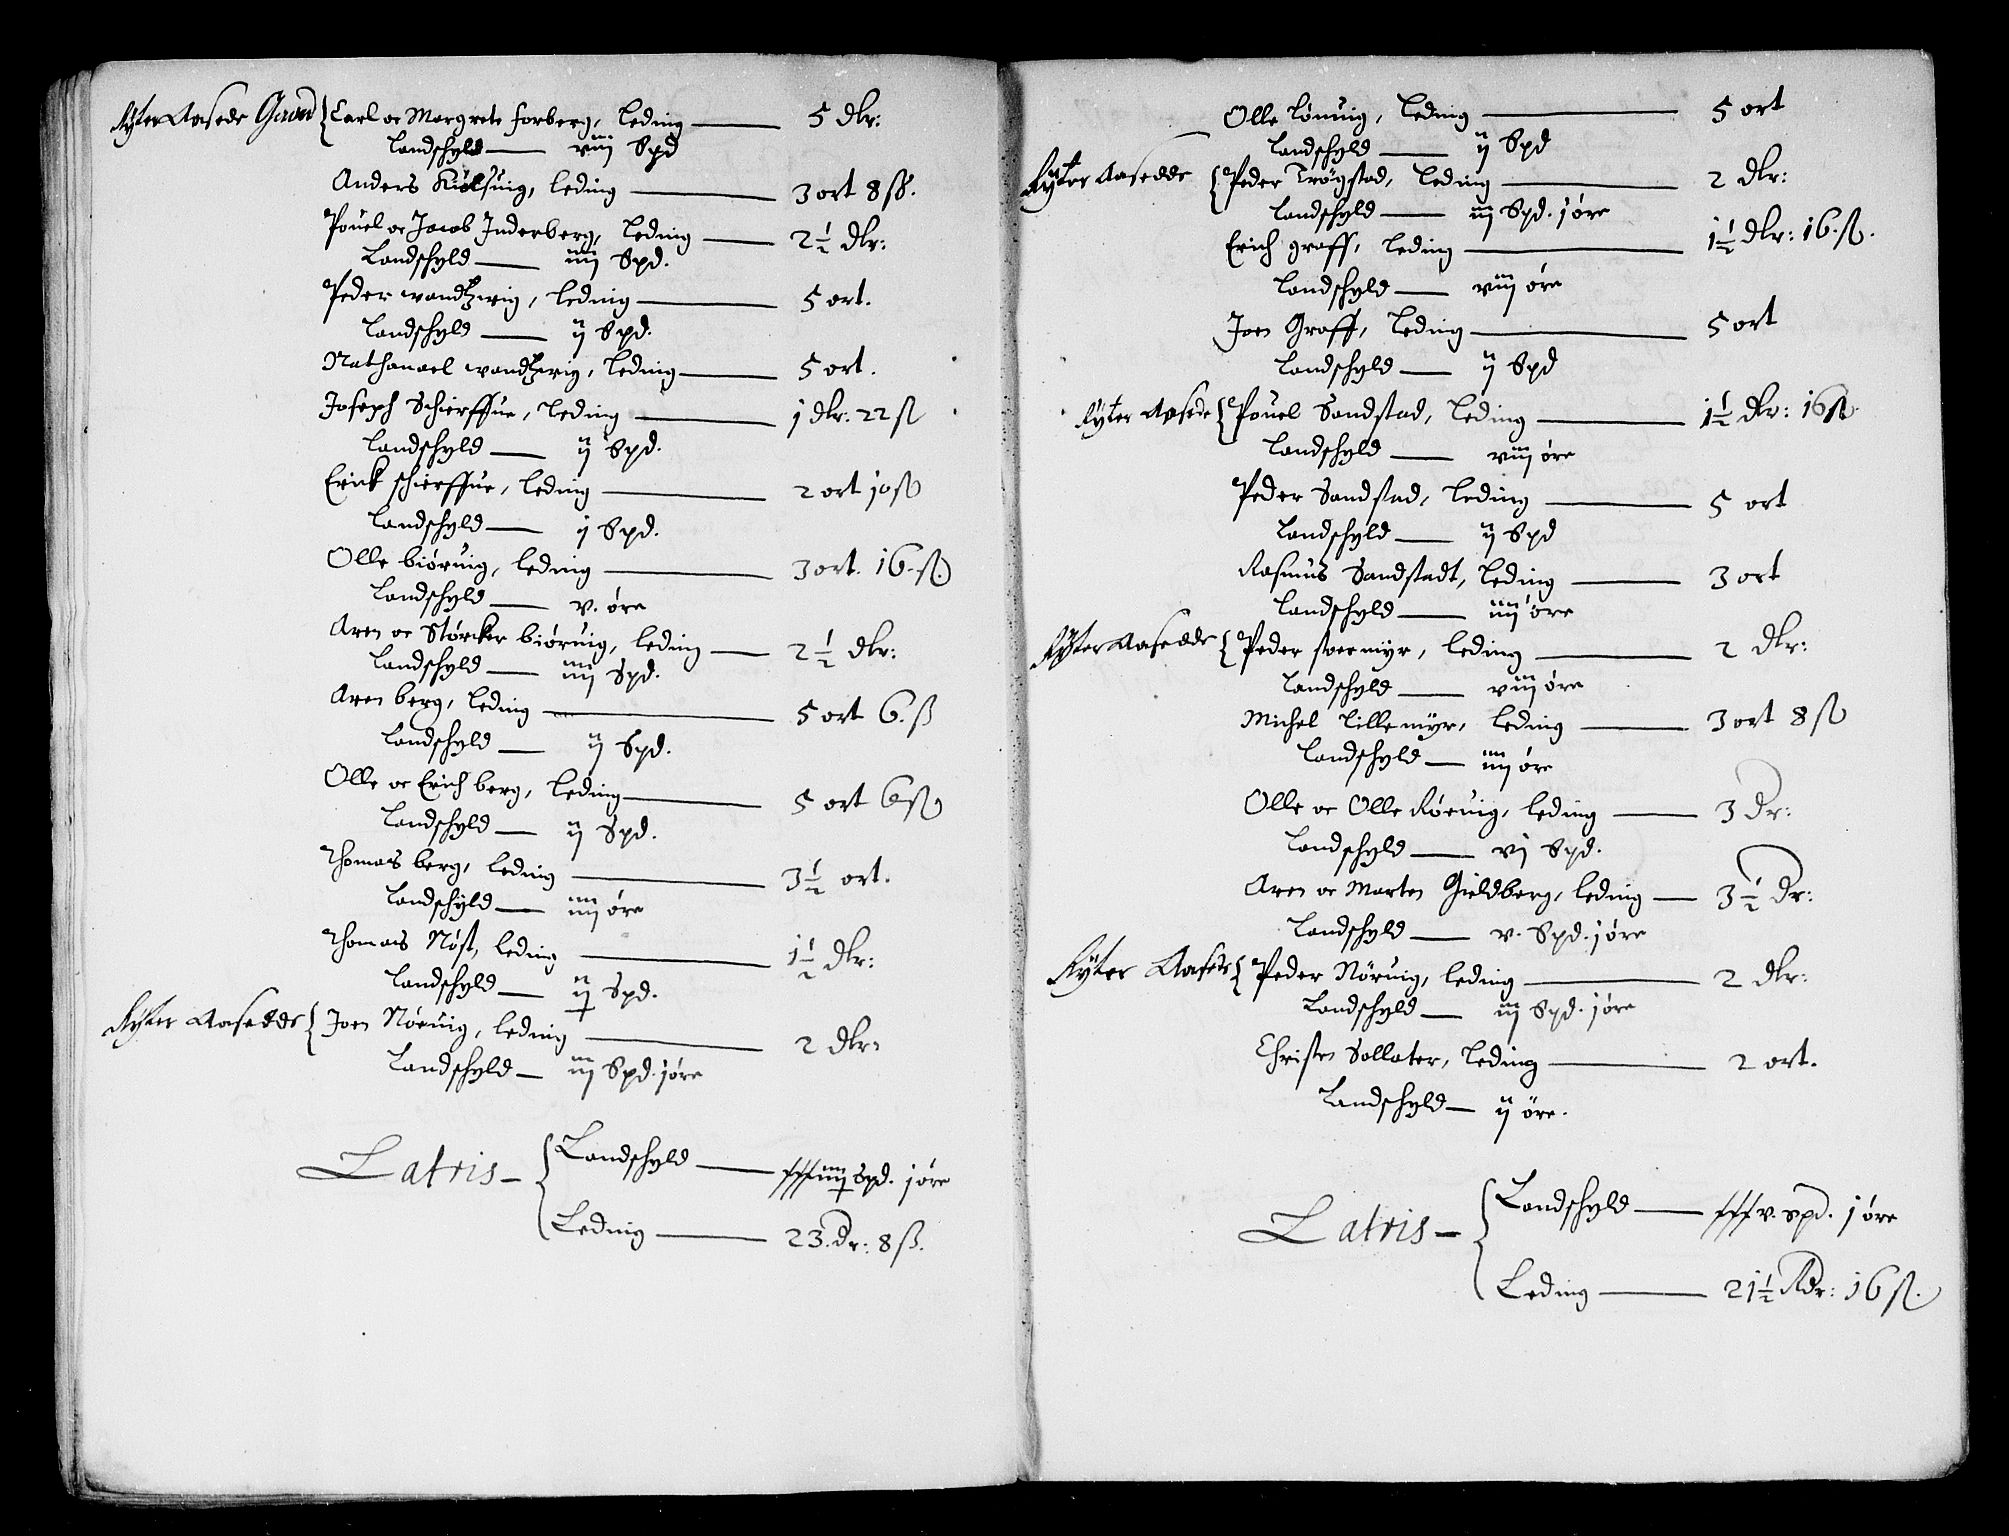 Ryter Aasede Gaard { Carl oc Margrete forberg, leding — 5 dlr:
Landschyld — viij Spd
Anders Kiølsuig, leding — 3 ort 8 ß.
Pouel oc Jacob Inderberg, leding — 2½ dlr:
Landschyld — iiij Spd.
Peder wandzwig, leding — 5 ort.
Landschyld — ij Spd.
Nathanael wandzwig, leding — 5 ort.
Joseph Schierffue, leding — j dlr: 22 ß
Landschyld — ij Spd.
Erick schierffue, leding — 2 ort 10 ß
Landschyld — j Spd.
Olle biøruig, leding — 3 ort. 16. ß.
Landschyld — v. øre
Aren oc Størcker biøruig, leding — 2½ dlr:
Landschyld — iiij Spd.
Aren berg, leding — 5 ort 6. ß
Landschyld — ij Spd.
Olle oc Erich berg, leding — 5 ort 6 ß
Landschyld — ij Spd.
Thomas berg, leding — 3½ ort.
Landschyld — iiij øre
Thomas Nøst, leding — 1½ dlr:
Landschyld — ij Spd.
Ryter Aasedde { Joen Nøruig, leding — 2 dlr:
Landschyld — iij Spd. j øre
Latris — { Landschyld — xxxiiij Spd. j øre
Leding — 23. dr: 8 ß.
Olle Lønuig, leding — 5 ort
Landschyld — ij Spd
Ryter Aasedde { Peder Trøgstad, leding — 2 dlr:
Landschyld — iij Spd. j øre
Erich graff, leding — 1½ dlr: 16. ß.
Landschyld — viij øre
Joen Graff, leding — 5 ort
Landschyld — ij Spd
Ryter Aasede { Pouel Sandstad, leding — 1½ dlr: 16 ß.
Landschyld — viij øre
Peder Sandstad, leding — 5 ort
Landschyld — ij Spd
Rasmus Sandstadt, leding — 3 ort
Landschyld — iiij øre
Ryter Aasedde { Peder stoermyr, leding — 2 dlr:
Landschyld — viij øre
Michel Lillemyr, leding — 3 ort 8 ß
Landschyld — iiij øre
Olle oc Olle Røruig, leding — 3 dr:
Landschyld — vj Spd.
Aren oc Marten Gieldberg, leding — 3½ dr:
Landschyld — v. Spd. j øre
Ryter Aasede { Peder Nøruig, leding — 2 dlr:
Landschyld — iij Spd. j øre
Christen Sollater, leding — 2 ort.
Landschyld — ij øre.
Latris — { Landschyld — xxxv. spd. j øre
Leding — 21½ Rdr: 16 ß.